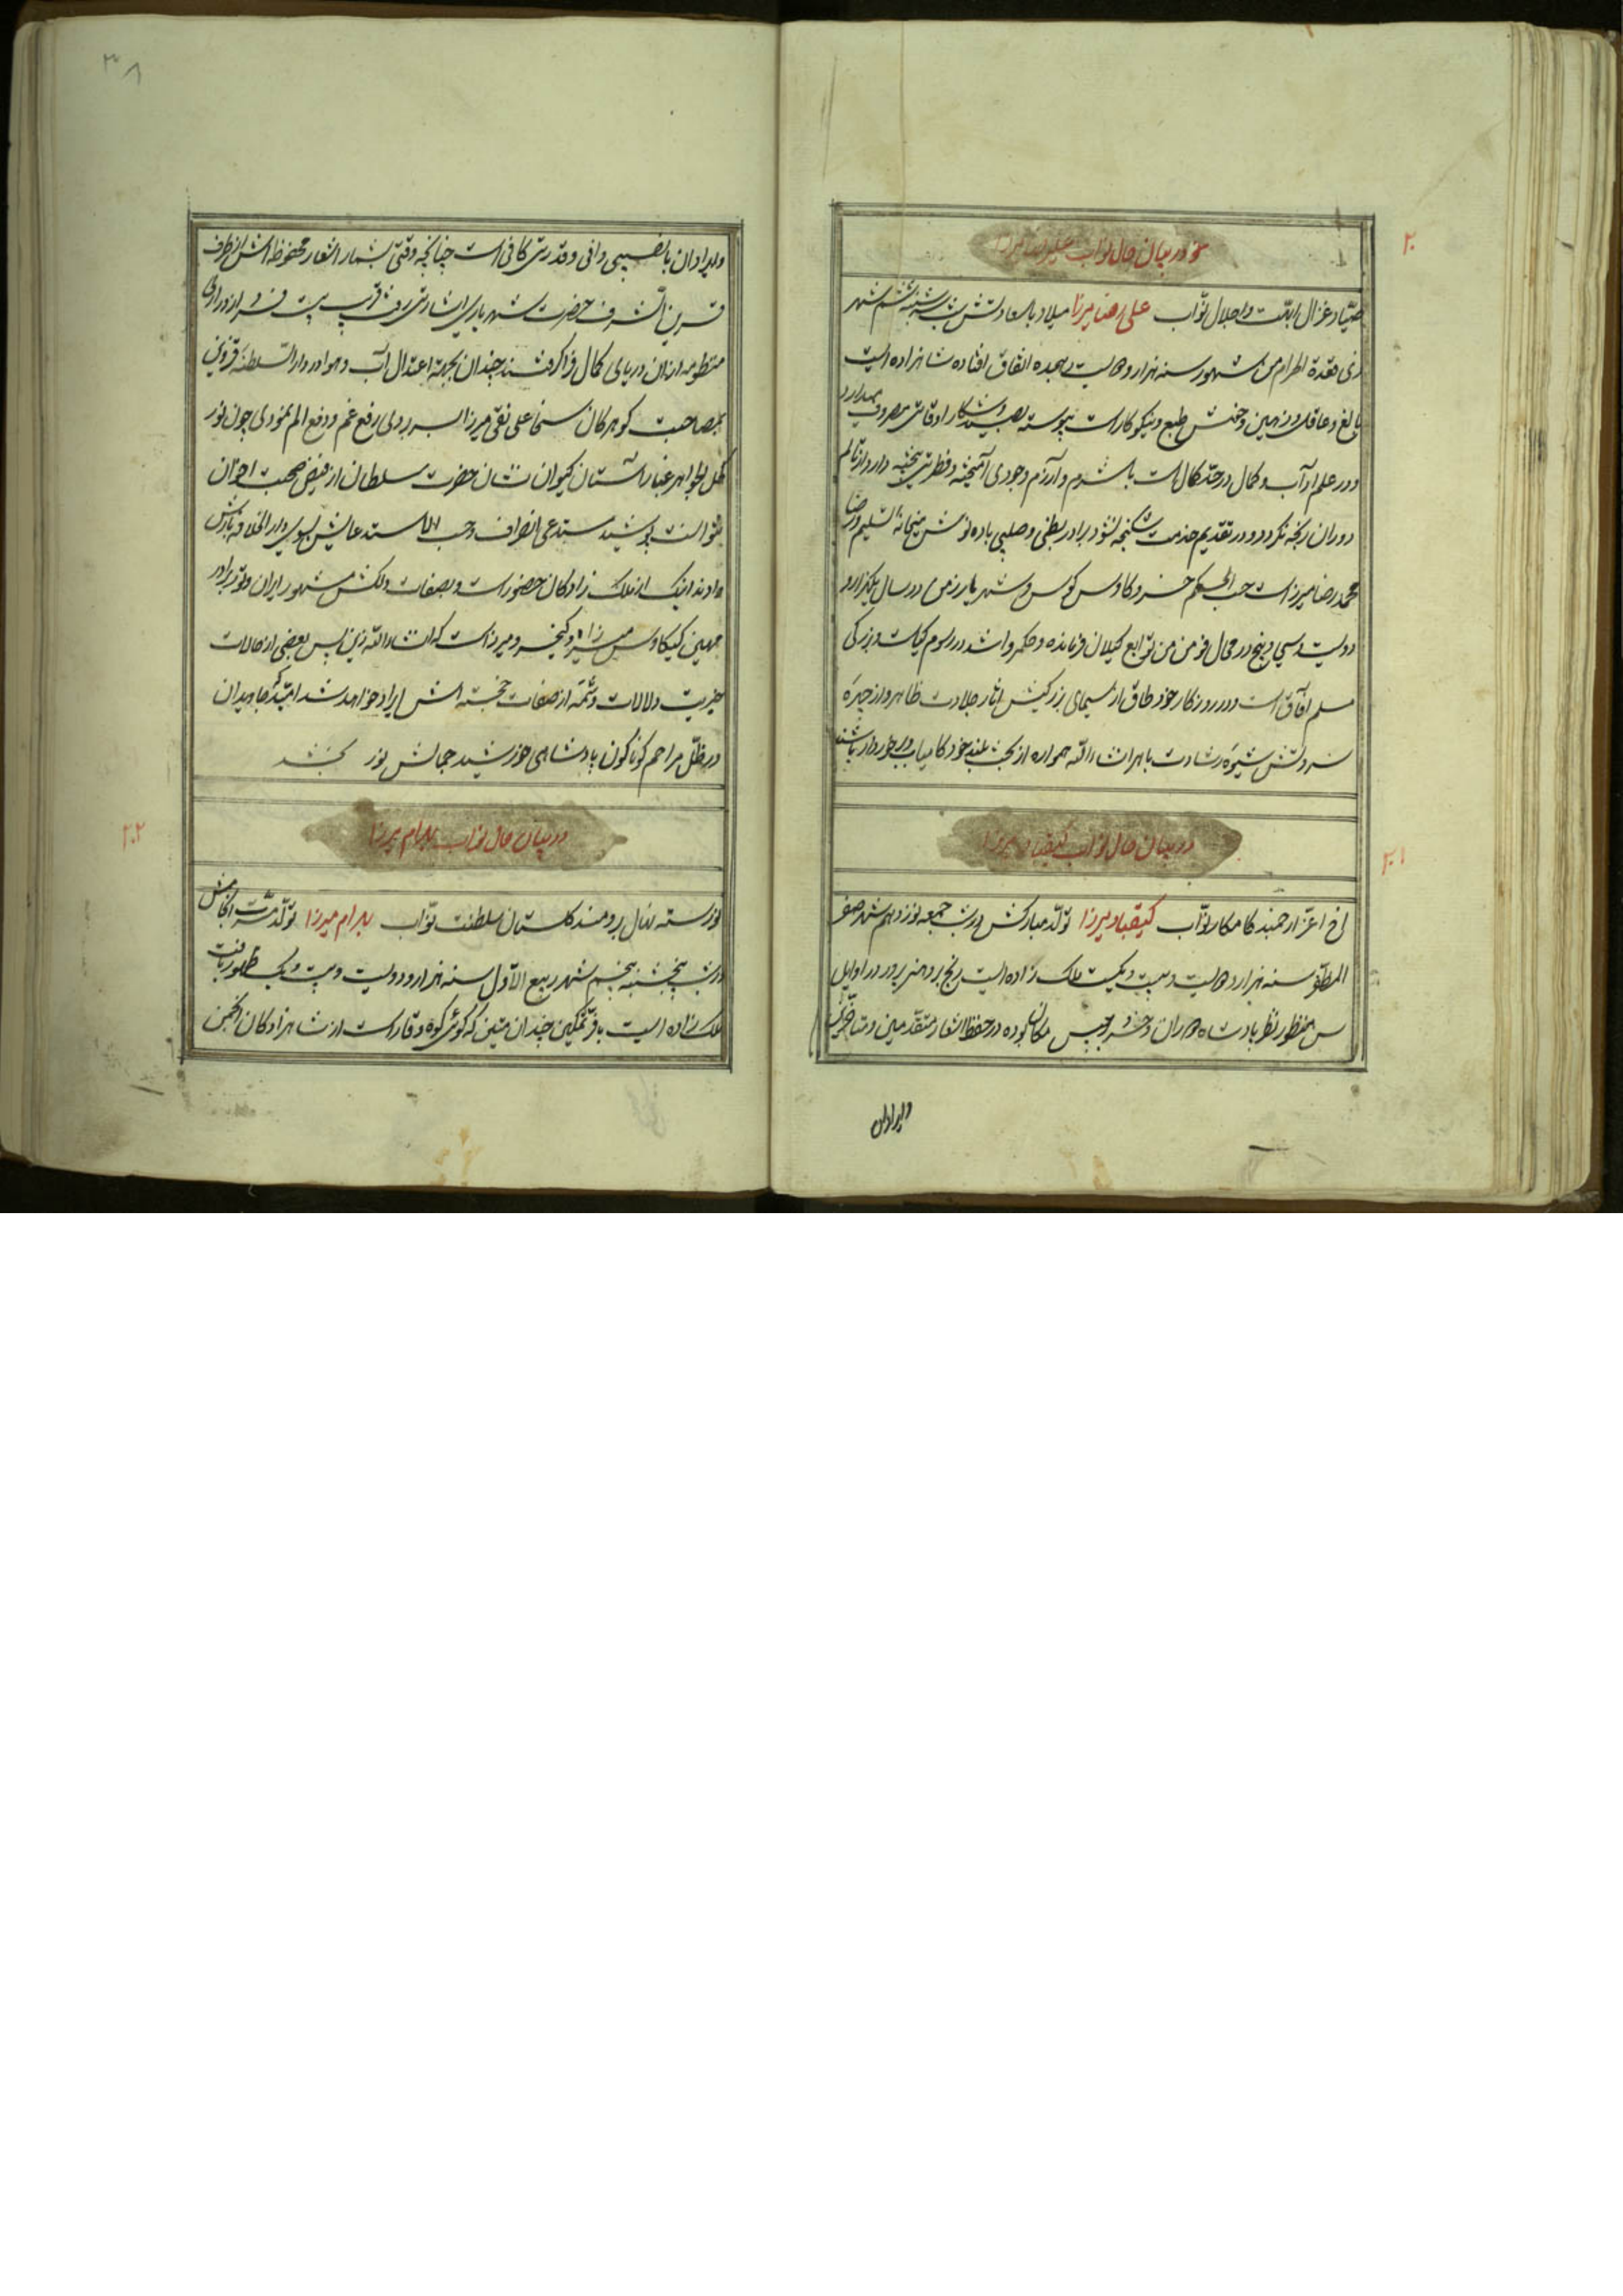 در بیان حال نواب علیرضا میرزا
۲۰
صیاد غزال ابهت و اجلال نواب علی رضا میرزا میلاد با سعادتش شب سه شنبه ششم شهر
ذی قعدة الحرام من شهور سنه هزار و دویست هیجده اتفاق افتاده شاهزاده ایست
بالغ و عاقل و ذهین و خوش طبع و نیکوکار است پیوسته بصید و شکار اوقاتش مصروف میدارد
و در علم آداب و کمال در حد کمال است با شرم و آزرم وجودی آمیخته و فطرتی پخته دارد از تالم
دوران رنجه نگردد و در تقدیم خدمت شکنجه نشود برادر بطنی و صلبی باده نوش میخانه تسلیم و رضا
محمد رضا میرزاست حسب الحکم خسرو کاوس کوس و شهریار رزمی در سال یکهزار و
دویست و سی و پنج در محال فومن من توابع گیلان فرمانده و حکمروا شد در رسوم کیاست و بزرگی
مسلم آفاق است و در روزگار خود طاق از سیمای بزرگیش آثار جلادت ظاهر و از چهره
سروتش شیوه رشادت باهر ان شاء الله همواره از بخت بلند خود کامیاب و برخوردار باشند
در بیان حال نواب کیقباد میرزا
۲۰۱
اخ اعز ارجمند کامکار نواب کیقباد میرزا تولد مبارکش در شب جمعه نوزدهم شهر صفر
المظفر سنه هزار و دویست و بیست و یکست ملک زاده ایست رنج بر و هنر پرور در اوایل
سن منظور نظر پادشاه دوران و خسرو برجیس مکان بوده در حفظ اشعار متقدمین و متأخرین
و ایراد ان
۳۸
و ایراد ان با نصیبی وافی و قدرتی کافی است چنانچه وقتی بشمار اشعار محفوظه اش از طرف
قرین الشرف حضرت شهریاری اشارتی رفت قرب بیست هزار از دراری
منظومه از ان دریای کمال فراگرفتند چندان بجهة اعتدال آب و هوا در دار السلطنه قزوین
بمصاحبت گوهر کان سخا علی نقی میرزا بسر بردی رفع غم و دفع الم نمودی چون نور
کحل الجواهر غبار آستان کیوان نشان حضرت سلطان از فیض صحبت اخوان
نتوانست پوشید مستدعی انصراف و حسب الاستدعایش بسوی دار الخلافه بارش
دادند اینک از ملک زادگان حضور است و بصفات دلکش مشهور ایران و تور برادر
مهین کیکاوس میرزا و کیخسرو میرزاست که انشاء الله زین پس بعضی از حالات
خیریت دلالات و شمه از صفات خجسته اش ایراد خواهد شد امید که جاویدان
در ظل مراحم گوناگون پادشاهی خورشید جمالش نور بخشد
در بیان حال نواب بهرام میرزا
۲۰۲
نورسته نهال برومند گلستان سلطنت نواب بهرام میرزا تولد مسرت انجامش
در شب پنجشنبه پنجم شهر ربیع الاول سنه هزار و دویست و بیست و یک ظهور یافت
ملک زاده ایست با فر تمکین چندان متین که گوئی کوه وقار است از شاهزادگان انجمن